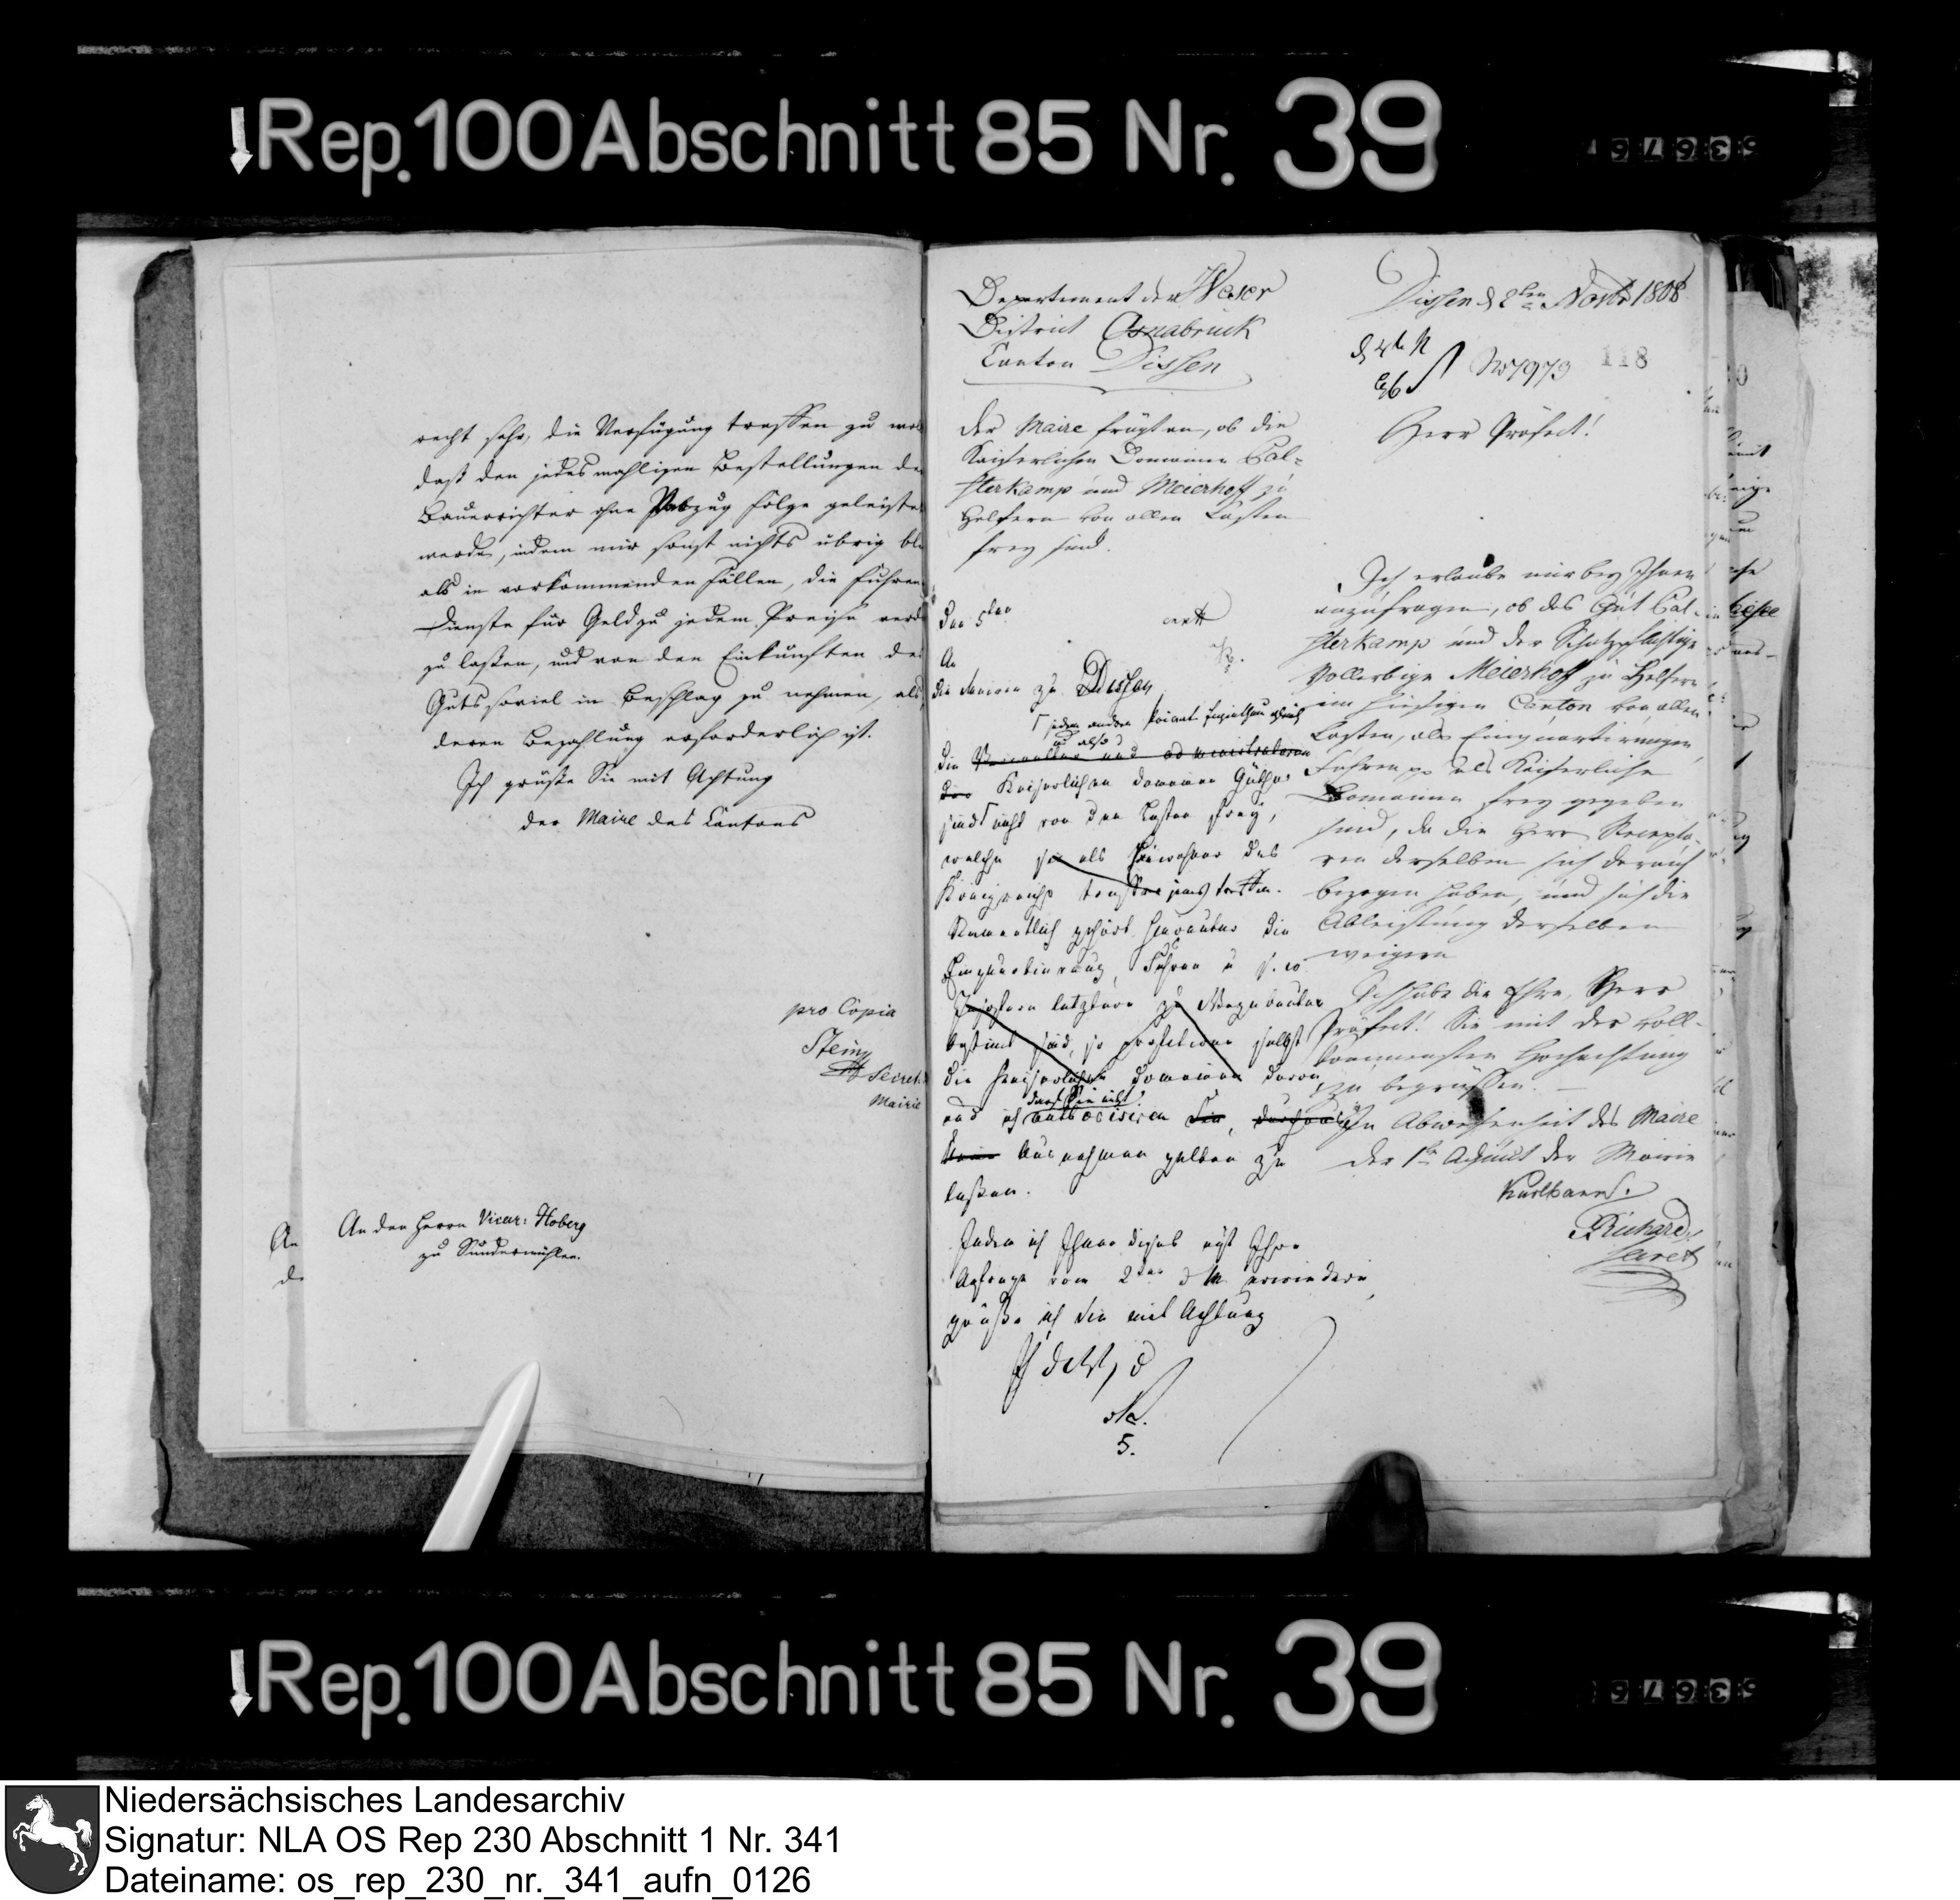 Rep. 100 Abschnitt 85 Nr. 39
recht sehr, die Verfügung treffen zu wol
daß den jedesmahligen Bestellungen de
Bauerrichter ohne Abzug folge geleistet
werde, indem mir sonst nichts übrig bl
als in vorkommenden fällen, die fuhren
Dienste für Geld zu jedem Preise verd
zu laßen, und von den Einkünften des
Guts soviel in Beschlag zu nehmen, als
deren Bezahlung erforderlich ist.
Ich grüße Sie mit Achtung
der Maire des Cantons
pro Copia
Stein
Secret.
Mairie
An den Herrn Vicar: Hoberg
zu Sundermühlen.
An
de
Departement der Weser
District Osnabrück
Canton Dissen
Der Maire frägt an, ob die
Kaiserlichen Domainen Pal-
sterkamp und Meierhoff zu
Helfern von allen Lasten
frey sind.
Den 5ten
An
die Mairie zu Dissen
jedem andern Privat
also
die
Kaiserlichen Domainen Güther
sind nicht von den Lasten frey,
welche sie als Einwohner des
Königreichs treffen.
Namentlich gehört hierunter die
Einquartierung, Fuhren u. s. w.
Insofern letztere zu Wegebauten
bestimt sind, so
die Kaiserlichen Domainen davon
und ich authorisiren Sie, durchaus
keine Ausnahmen gelten zu
laßen.
Indem ich Ihnen dieses auf Ihre
Anfrage vom 2ten d. M. erwiedere,
grüße ich Sie mit Achtung
5.
Dissen d 2ten Novbr 1808
No 7973
118
Herr Präfect!
Ich erlaube mir bey Ihnen
anzufragen, ob das Gut Pal-
sterkamp und der Schatzpflichtige
Vollerbige Meierhoff zu Helfern
im hiesigen Canton von allen
Lasten, als Einquartirungen,
Fuhren pp als Kaiserliche
Domainen frey gegeben
sind, da die Herrn Recepto-
ren derselben sich darauf
bezogen haben, und sich die
Ableistung derselben
weigern
Ich habe die Ehre, Herr
Präfect! Sie mit der voll-
kommensten Hochachtung
zu begrüssen. —
In Abwesenheit des Maire
der 1te Adjunct der Mairie
Richard
Secret
Rep. 100 Abschnitt 85 Nr. 39
Niedersächsisches Landesarchiv
Signatur: NLA OS Rep 230 Abschnitt 1 Nr. 341
Dateiname: os_rep_230_nr._341_aufn_0126